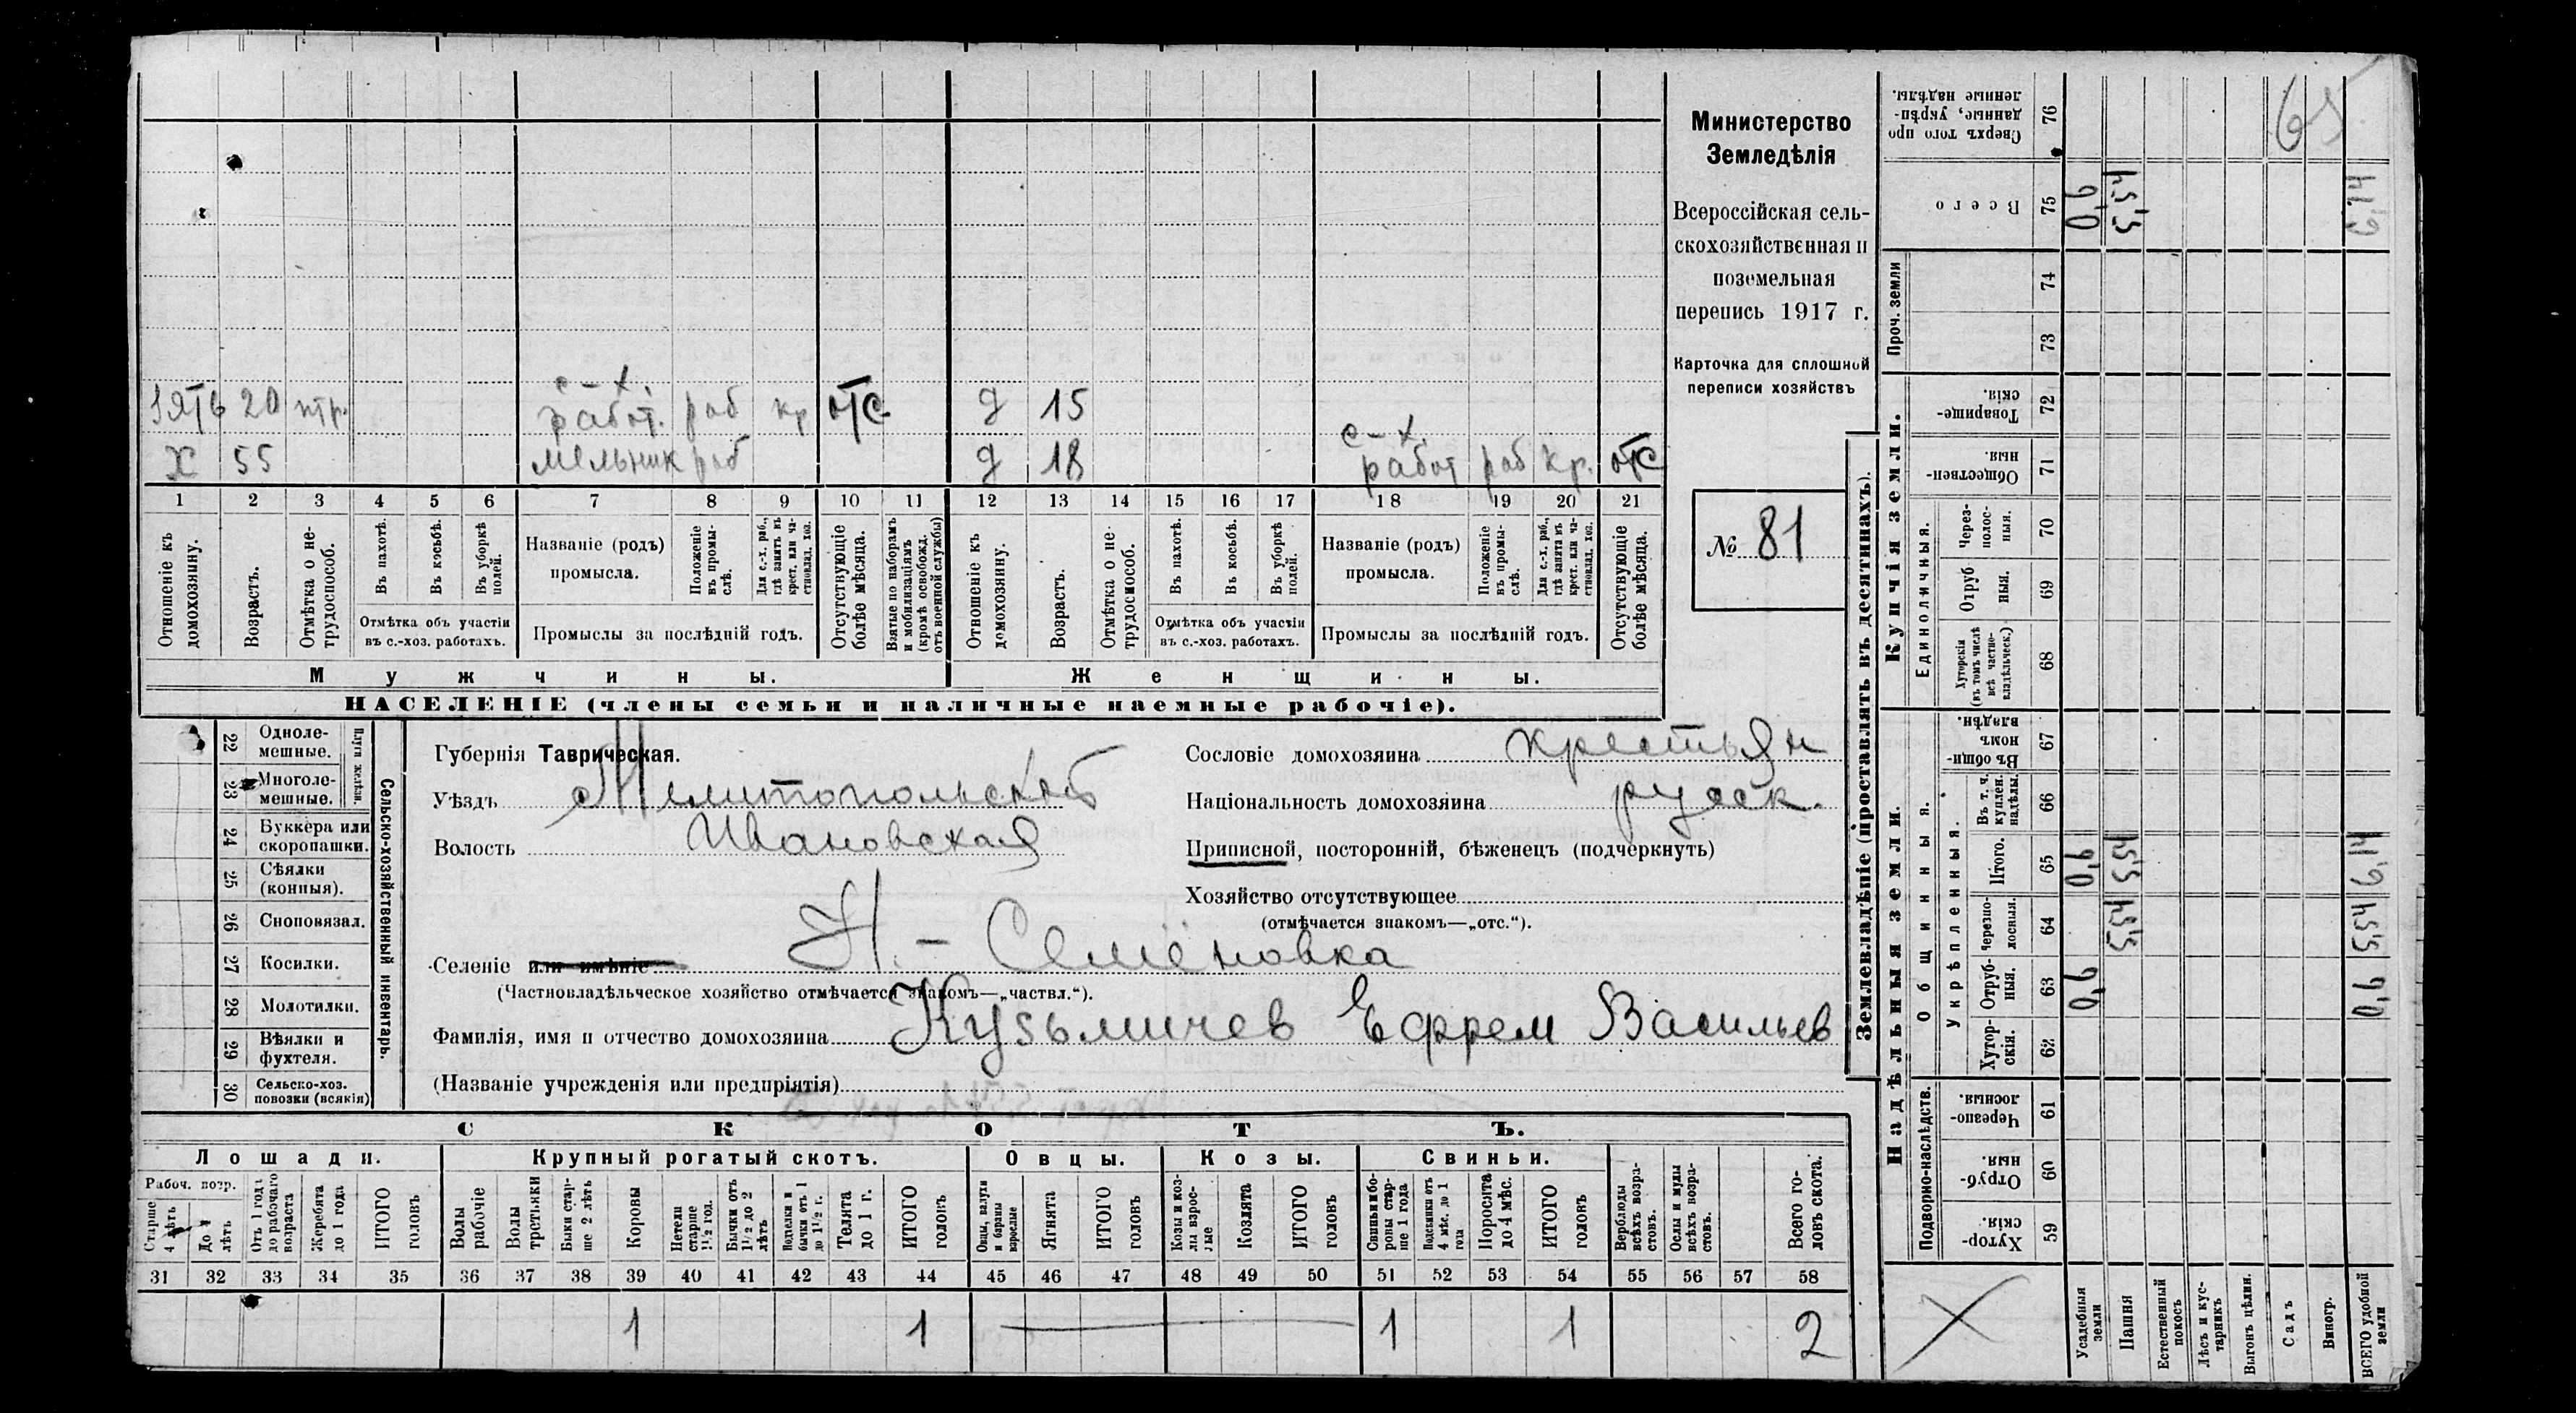 65
Министерство
Земледѣлія
Всероссійская сель-
скохозяйственная и
поземельная
перепись 1917 г.
Карточка для сплошной
переписи хозяйствъ
№ 81
зять 20 с-х. работ. раб кр отс д 15
х 55 мельник раб д 18 с-х. работ раб кр. отс
1 2 3 4 5 6 7 8 9 10 11 12 13 14 15 16 17 18 19 20 21
Отношеніе къ домохозяину.
Возрастъ.
Отмѣтка о не-трудоспособ.
Въ пахотѣ.
Въ косьбѣ.
Въ уборкѣ полей.
Отмѣтка объ участіи
въ с.-хоз. работахъ.
Названіе (родъ)
промысла.
Положеніе въ промы-слѣ.
Для с.-х. раб., гдѣ занятъ въ крест. или ча-стновлад. хоз.
Промыслы за послѣдній годъ.
Отсутствующіе болѣе мѣсяца.
Взятые по наборамъ и мобилизаціямъ (кромѣ освобожд. отъ военной службы)
Отношеніе къ домохозяину.
Возрастъ.
Отмѣтка о не-трудоспособ.
Въ пахотѣ.
Въ косьбѣ.
Въ уборкѣ полей.
Отмѣтка объ участіи
въ с.-хоз. работахъ.
Названіе (родъ)
промысла.
Положеніе въ промы-слѣ.
Для с.-х. раб., гдѣ занята въ крест. или ча-стновлад. хоз.
Промыслы за послѣдній годъ.
Отсутствующіе болѣе мѣсяца.
Мужчины. Женщины.
НАСЕЛЕНІЕ (члены семьи и наличные наемные рабочіе).
Сельско-хозяйственный инвентарь.
Плуги желѣзн.
22 Одноле-мешные.
23 Многоле-мешные.
24 Буккера или скоропашки.
25 Сѣялки (конныя).
26 Сноповязал.
27 Косилки.
28 Молотилки.
29 Вѣялки и фухтеля.
30 Сельско-хоз. повозки (всякія)
Губернія Таврическая.
Уѣздъ Мелитопольский
Волость Ивановская
Селеніе или имѣніе Н.-Семёновка
(Частновладѣльческое хозяйство отмѣчается знакомъ—„частвл.“).
Фамилія, имя и отчество домохозяина Кузьмичев Ефрем Васильев
(Названіе учрежденія или предпріятія)
Сословіе домохозяина крестьян
Національность домохозяина русск.
Приписной, посторонній, бѣженецъ (подчеркнуть)
Хозяйство отсутствующее
(отмѣчается знакомъ—„отс.“).
СКОТЪ.
Лошади. Крупный рогатый скотъ. Овцы. Козы. Свиньи.
Рабоч. возр.
Старше 4 лѣтъ
До 4 лѣтъ
Отъ 1 года до рабочаго возраста
Жеребята до 1 года
ИТОГО головъ
Волы рабочіе
Волы третьяки
Быки стар-ше 2 лѣтъ
Коровы
Нетели старше 1½ год.
Бычки отъ 1½ до 2 лѣтъ
Телята до 1 г.
ИТОГО головъ
Овцы, валухи и бараны взрослые
Ягнята
ИТОГО головъ
Козы и коз-лы взрос-лые
Козлята
ИТОГО головъ
Свиньи и бо-ровы стар-ше 1 года
Подсвинки отъ 4 мѣс. до 1 года
Поросята до 4 мѣс.
ИТОГО головъ
Верблюды всѣхъ возра-стовъ.
Ослы и мулы всѣхъ возра-стовъ.
Всего го-ловъ скота.
31 32 33 34 35 36 37 38 39 40 41 42 43 44 45 46 47 48 49 50 51 52 53 54 55 56 57 58
1 1 1 1 2
Землевладѣніе (проставлять въ десятинахъ).
Надѣльныя земли. Купчія земли. Проч. земли
Подворно-наслѣдств.
Общинныя.
Укрѣпленныя.
Единоличныя.
76 Сверхъ того про-данные, укрѣп-ленные надѣлы.
75 Всего 0,9 5,54 6,14
74
73
72 Товарище-скія.
71 Обществен-ныя.
70 Через-полос-ныя.
69 Отруб-ныя.
68 Хуторскія (въ томъ числѣ всѣ частно-владѣльческ.)
67 Въ общин-номъ владѣн.
66 Въ т. ч. куплен. надѣлы.
65 Итого. 0,9 5,54 6,14
64 Черезпо-лосныя. 5,54 5,54
63 Отруб-ныя. 0,9 0,9
62 Хутор-скія.
61 Черезпо-лосныя.
60 Отруб-ныя.
59 Хутор-скія.
Усадебныя земли
Пашня
Естественный покосъ
Лѣсъ и кус-тарникъ
Выгонъ цѣлин.
Садъ
Виногр.
ВСЕГО удобной земли